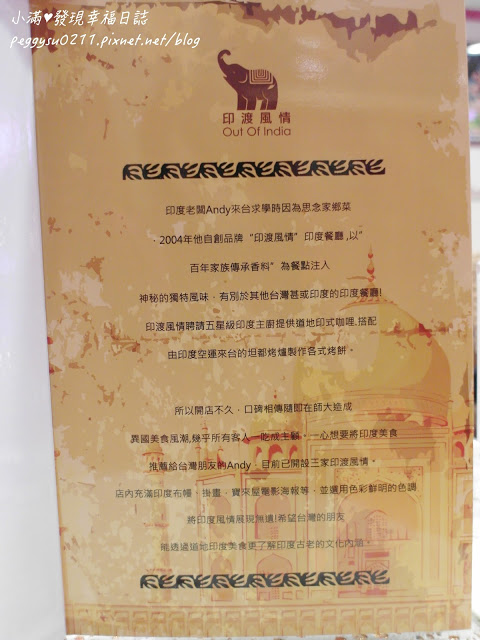 小滿♥發現幸福日誌
peggysu0211.pixnet.net/blog
印渡風情
Out Of India
印度老闆Andy來台求學時因為思念家鄉菜
，2004年他自創品牌“印渡風情”印度餐廳,以”
百年家族傳承香料”為餐點注入
神秘的獨特風味、有別於其他台灣甚或印度的印度餐廳!
印渡風情聘請五星級印度主廚提供道地印式咖哩,搭配
由印度空運來台的坦都烤爐製作各式烤餅。
所以開店不久，口碑相傳隨即在師大造成
異國美食風潮,幾乎所有客人一吃成主顧。一心想要將印度美食
推薦給台灣朋友的Andy，目前已開設三家印渡風情。
店內充滿印度布幔、掛畫，寶來塢電影海報等，並選用色彩鮮明的色調
將印度風情展現無遺!希望台灣的朋友
能透過道地印度美食更了解印度古老的文化內涵。